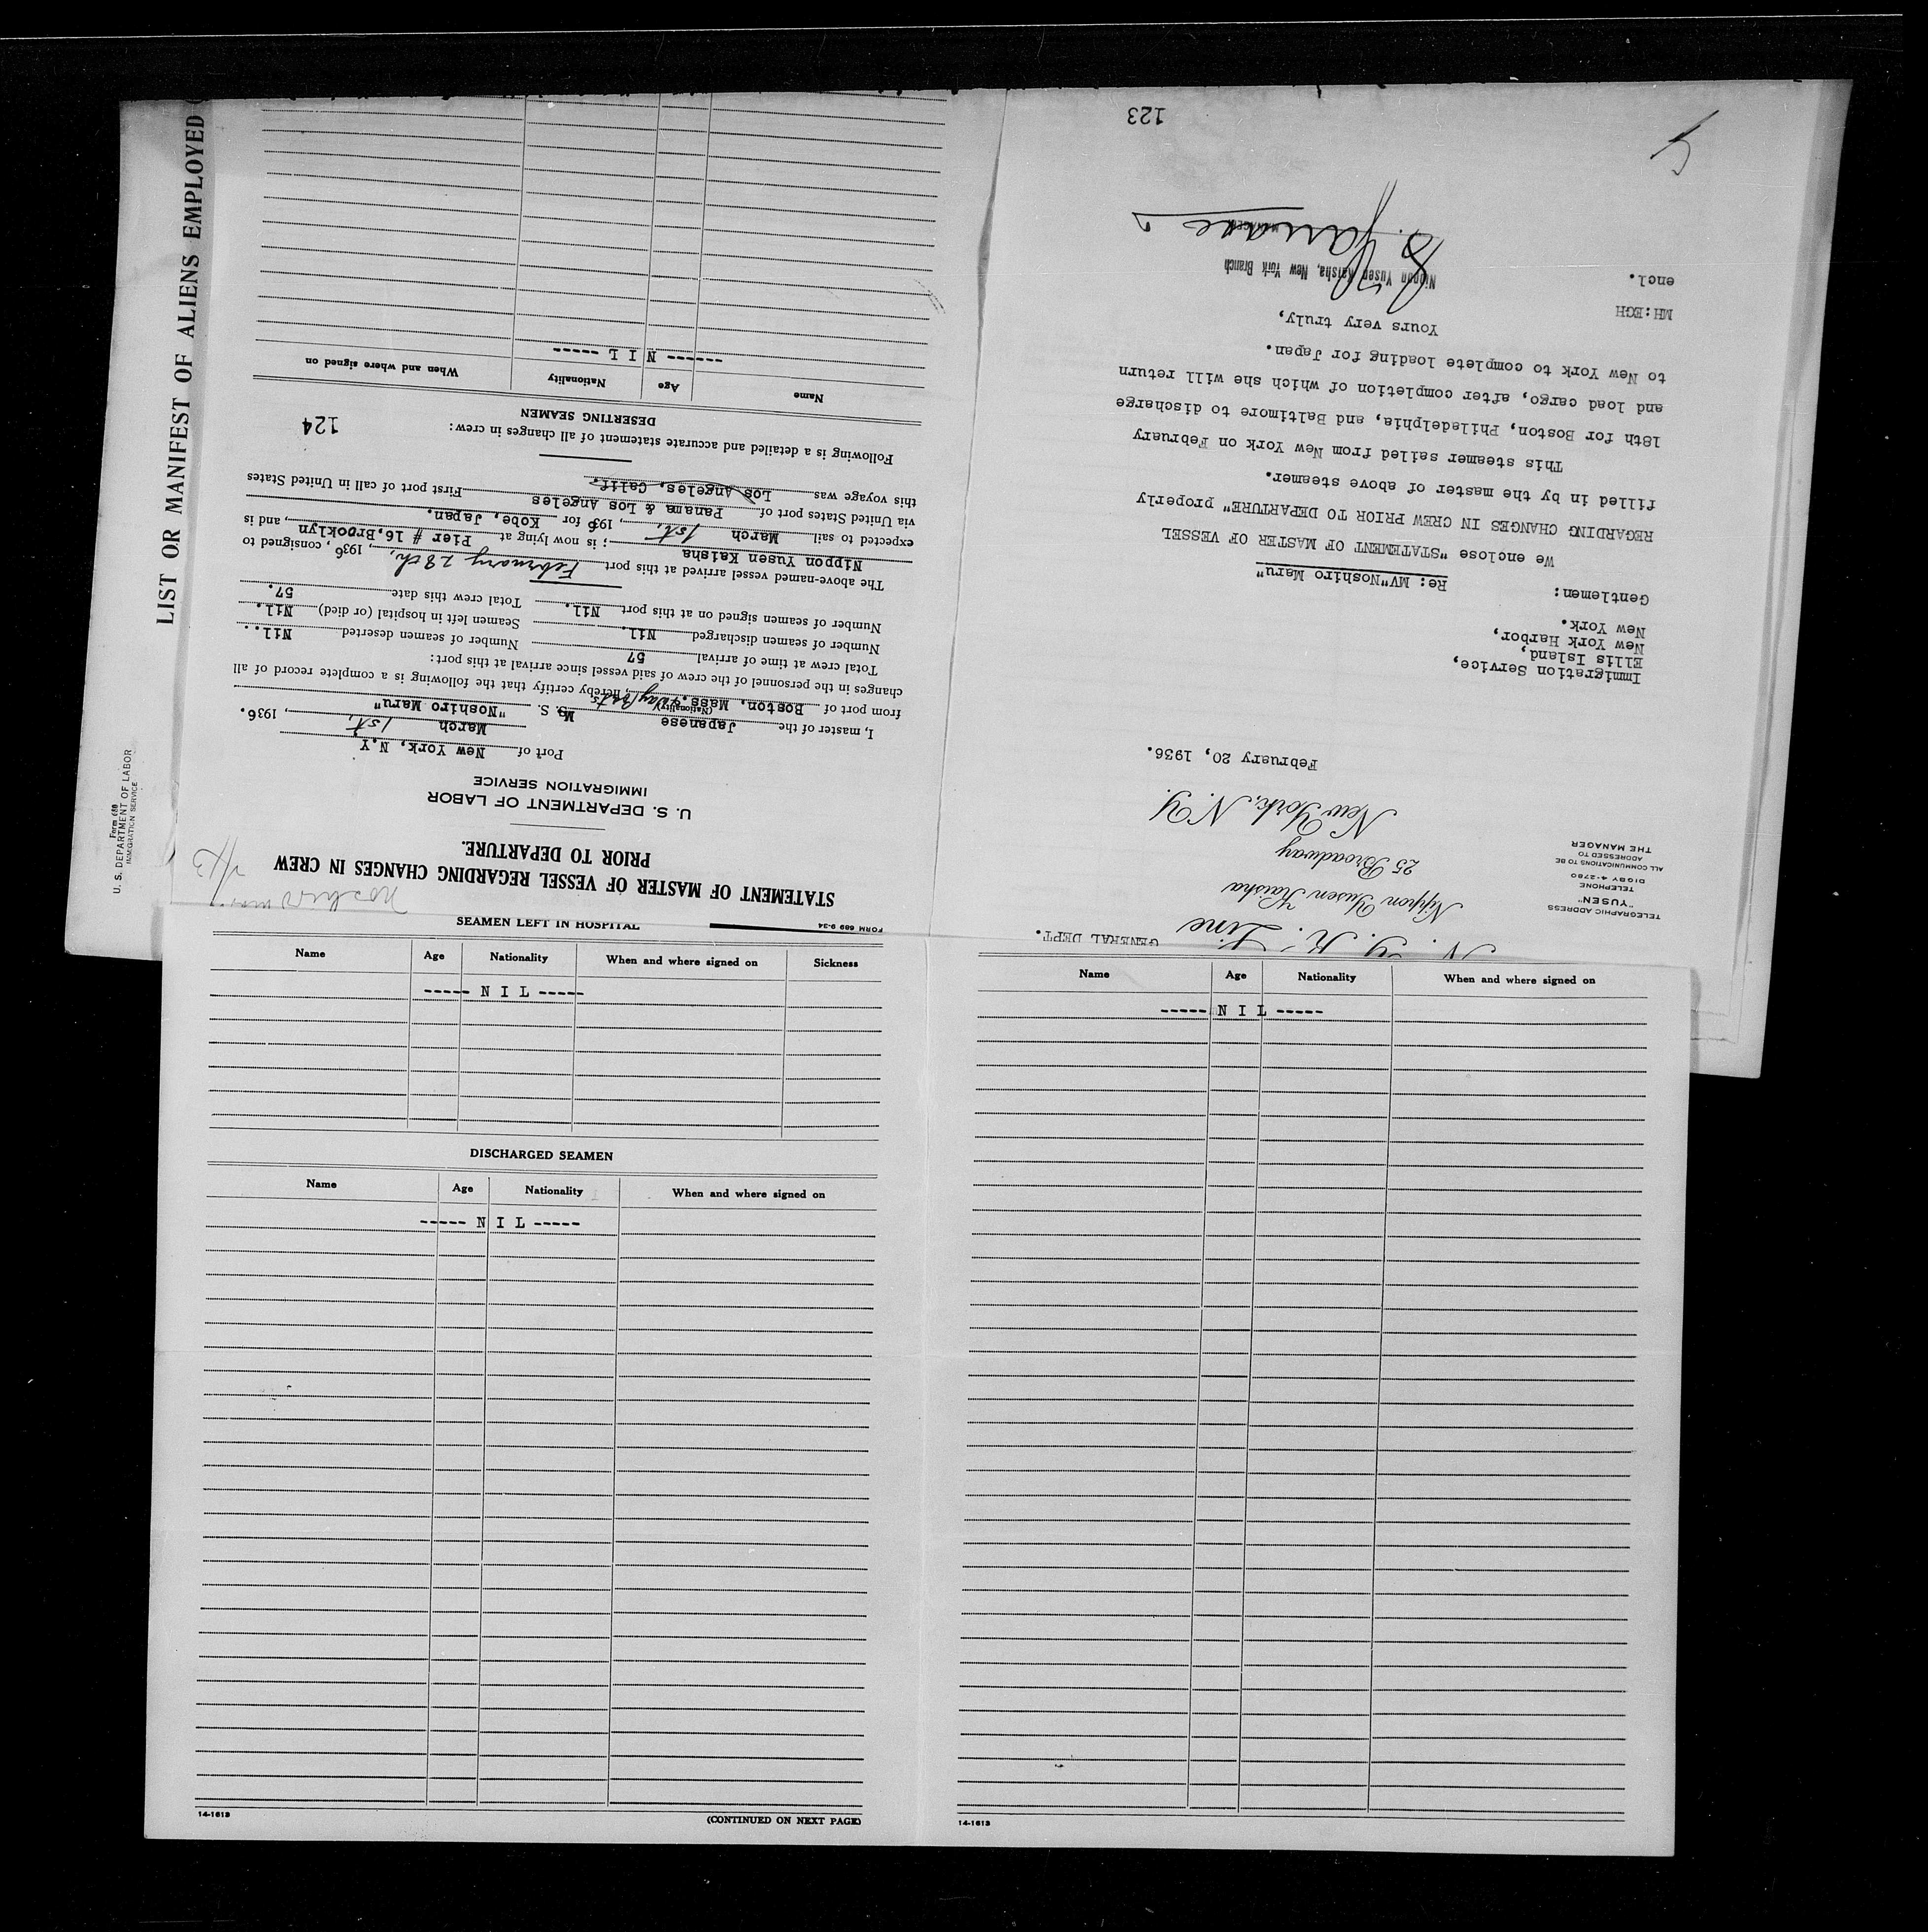 LIST OR MANIFEST OF ALIENS EMPLOYED
Form 689
U. S. DEPARTMENT OF LABOR
IMMIGRATION SERVICE
FORM 689 9-34
STATEMENT OF MASTER OF VESSEL REGARDING CHANGES IN CREW
PRIOR TO DEPARTURE.
U. S. DEPARTMENT OF LABOR
IMMIGRATION SERVICE
Port of New York, N.Y
March 1st, , 1936.
I, master of the Japanese M. S. "Noshiro Maru"
(Nationality)
from port of Boston, Mass. & Way Ports , hereby certify that the following is a complete record of all
changes in the personnel of the crew of said vessel since arrival at this port:
Total crew at time of arrival 57 Number of seamen deserted Nil.
Number of seamen discharged Nil. Seamen left in hospital (or died) Nil.
Number of seamen signed on at this port Nil. Total crew this date 57.
The above-named vessel arrived at this port February 28th, , 1936 , consigned to
Nippon Yusen Kaisha ; is now lying at Pier # 16, Brooklyn , and is
expected to sail March 1st, , 1936 for Kobe, Japan.
via United States port of Panama & Los Angeles First port of call in United States
this voyage was Los Angeles, Calif.
Following is a detailed and accurate statement of all changes in crew: 124
DESERTING SEAMEN
Name Age Nationality When and where signed on
------ N I L -----
N. Y. K. Line GENERAL DEPT.
Nippon Yusen Kaisha
25 Broadway
New York, N. Y.
TELEGRAPHIC ADDRESS
"YUSEN"
TELEPHONE
DIGBY 4-2780
ALL COMMUNICATIONS TO BE
ADDRESSED TO
THE MANAGER
February 20, 1936.
Immigration Service,
Ellis Island,
New York Harbor,
New York.
Gentlemen: Re: MV"Noshiro Maru"
We enclose "STATEMENT OF MASTER OF VESSEL
REGARDING CHANGES IN CREW PRIOR TO DEPARTURE" properly
filled in by the master of above steamer.
This steamer sailed from New York on February
18th for Boston, Philadelphia, and Baltimore to discharge
and load cargo, after completion of which she will return
to New York to complete loading for Japan.
Yours very truly,
MH:EGH
Nippon Yusen Kaisha, New York Branch
encl.
MANAGER
123
SEAMEN LEFT IN HOSPITAL
Name Age Nationality When and where signed on Sickness
----- N I L -----
DISCHARGED SEAMEN
Name Age Nationality When and where signed on
----- N I L -----
14-1613 (CONTINUED ON NEXT PAGE)
Name Age Nationality When and where signed on
----- N I L -----
14-1613